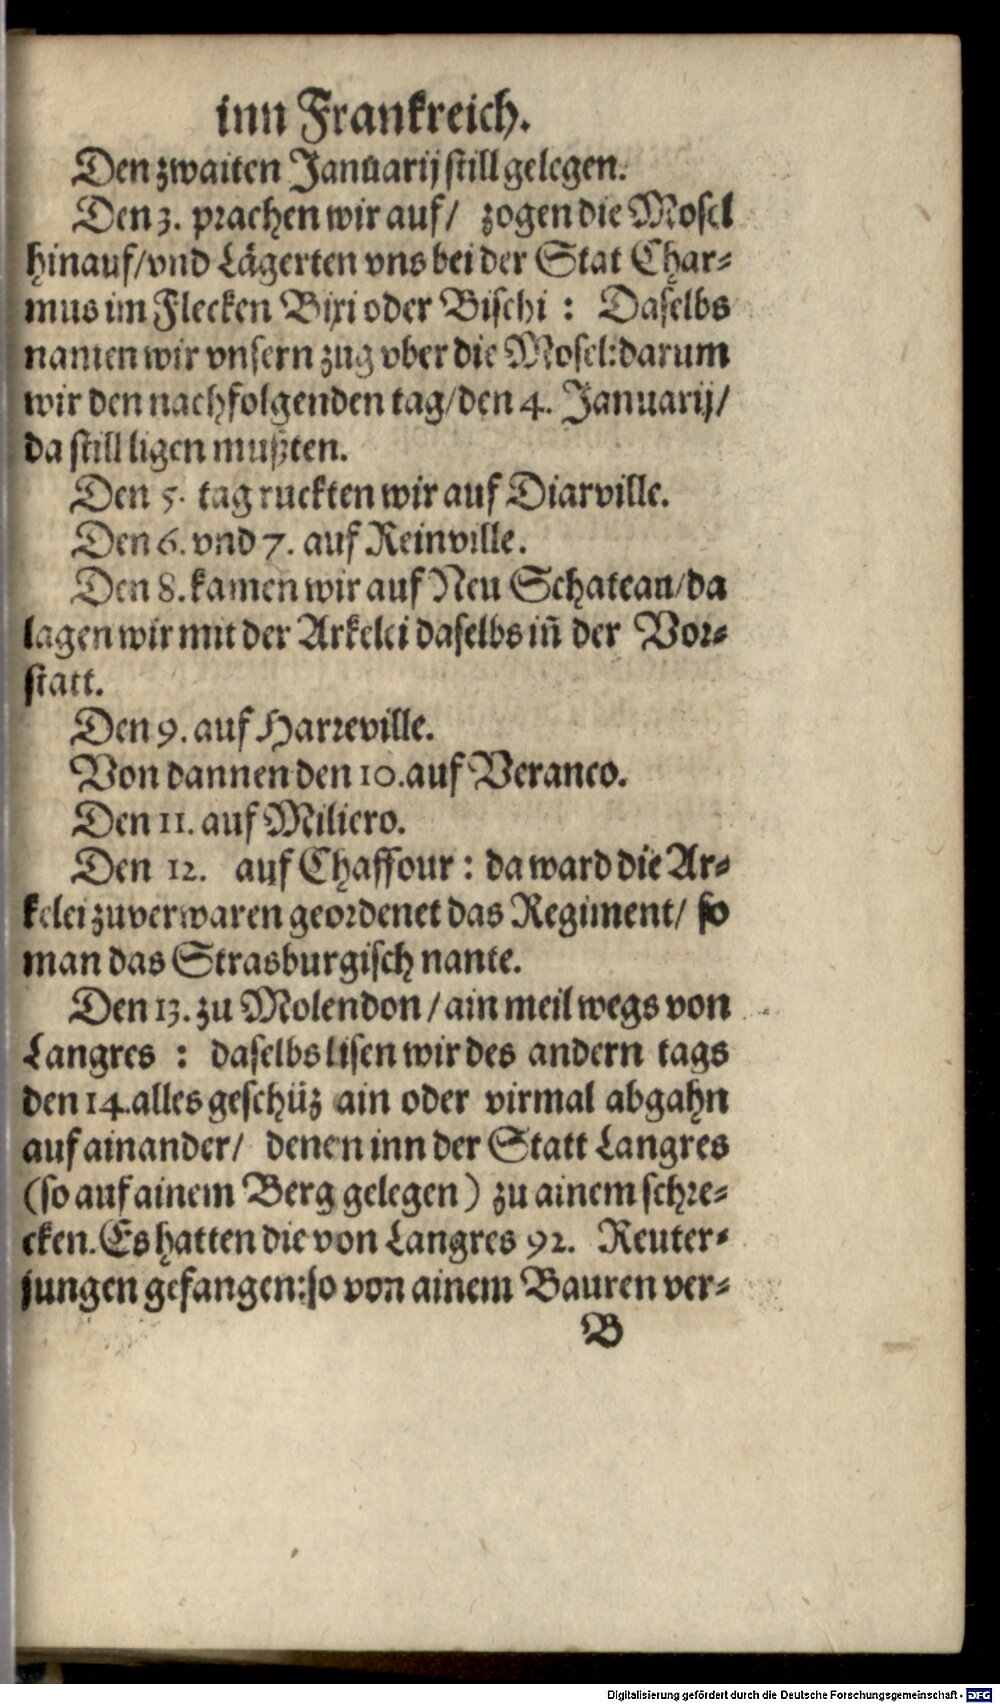 inn Frankreich.
Den zwaiten Januarij still gelegen.
Den 3. prachen wir auf/ zogen die Mosel
hinauf/vnd Lägerten vns bei der Stat Char⸗
mus im Flecken Bixi oder Bischi : Daselbs
namen wir vnsern zug vber die Mosel:darum
wir den nachfolgenden tag/den 4. Januarij/
da still ligen mußten.
Den 5. tag ruckten wir auf Diarville.
Den 6. vnd 7. auf Reinville.
Den 8. kamen wir auf Neu Schatean/da
lagen wir mit der Arkelei daselbs iñ der Vor⸗
statt.
Den 9. auf Harreville.
Von dannen den 10. auf Veranco.
Den 11. auf Miliero.
Den 12. auf Chaffour : da ward die Ar⸗
kelei zuverwaren geordenet das Regiment/ so
man das Strasburgisch nante.
Den 13. zu Molendon / ain meil wegs von
Langres : daselbs lisen wir des andern tags
den 14. alles geschüz ain oder virmal abgahn
auf ainander/ denen inn der Statt Langres
(so auf ainem Berg gelegen) zu ainem schre⸗
cken. Es hatten die von Langres 92. Reuter⸗
jungen gefangen:so von ainem Bauren ver⸗
B
Digitalisierung gefördert durch die Deutsche Forschungsgemeinschaft - DFG